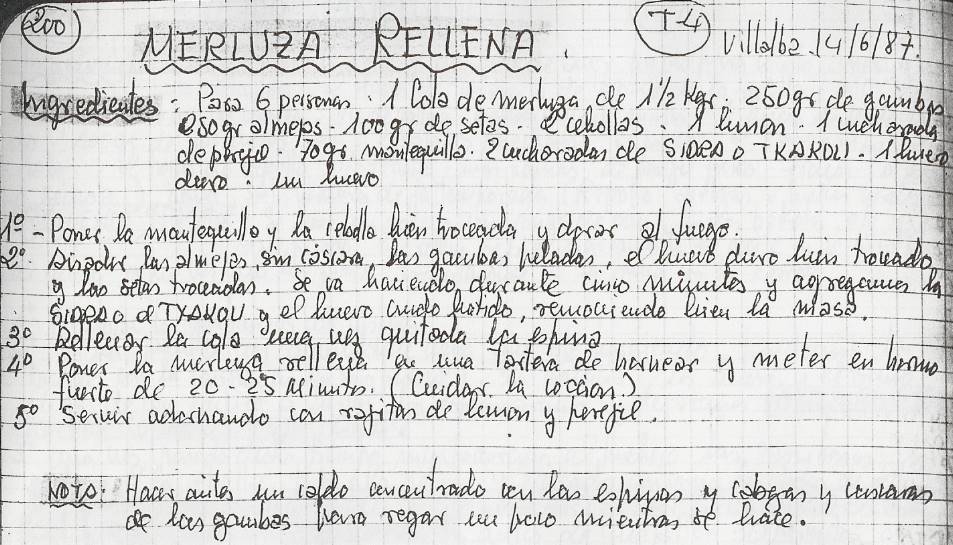 200 MERLUZA RELLENA. T-4 Villalba 14/6/87.
Ingredientes: Para 6 personas. 1 Cola de merluza de 1 1/2 Kgr. 250gr de gambas
250gr almejas. 100gr de setas. 2 cebollas. 1 limon. 1 cucharada
de perejil. 70gr. mantequilla. 2 cucharadas de SIDRA O TXAKOLI. 1 huevo
duro. un huevo
1º - Poner la mantequilla y la cebolla bien troceada y dorar al fuego.
2º. Añadir las almejas, sin cáscara, las gambas peladas, el huevo duro bien troceado
y las setas troceadas. Se va haciendo, durante cinco minutos y agregamos la
SIDRA O el TXAKOLI y el huevo crudo batido, removiendo bien la masa.
3º Rellenar la cola una vez quitada la espina
4º Poner la merluza rellena en una Tartera de hornear y meter en horno
fuerte de 20-25 minutos. (Cuidar la cocción)
5º Servir adornando con rajitas de limon y perejil.
NOTA: Hacer antes un caldo concentrado con las espinas y cabezas y cascaras
de las gambas para regar un poco mientras se hace.